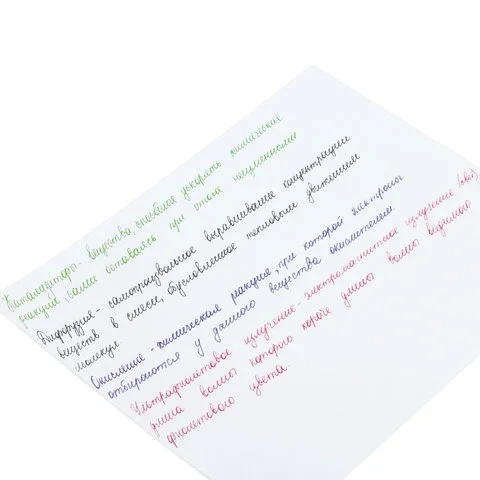 Катализаторы - вещества, способные ускорять химические
реакции, сами оставаясь при этом неизменными
Диффузия - самопроизвольное выравнивание концентрации
веществ в смеси, обусловленное тепловым движением
молекул.
Окисление - химическая реакция, при которой электроны
отбираются у данного вещества окислителем.
Ультрафиолетовое излучение - электромагнитное излучение
длина волны которого короче длины волны видимого
фиолетового цвета.